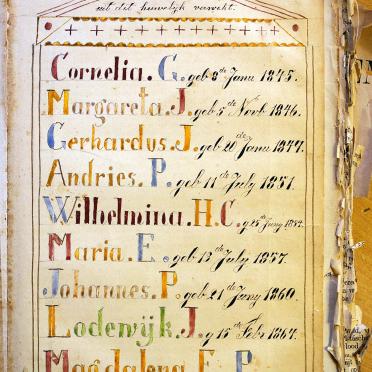 uit dit huwelijk verwekt.
Cornelia. G. geb 8ste Janu 1845.
Margareta. J. geb 5de Novb 1846.
Gerhardus. J. geb 20de Janu 1847.
Andries. P. geb 11de July 1851.
Wilhelmina. H. C. g 25ste Juny 1854.
Maria. E. geb 13de July 1857.
Johannes. P. geb 21ste Juny 1860.
Lodewijk. J. g 15de Febr 1864.
Magdalena. E. P.